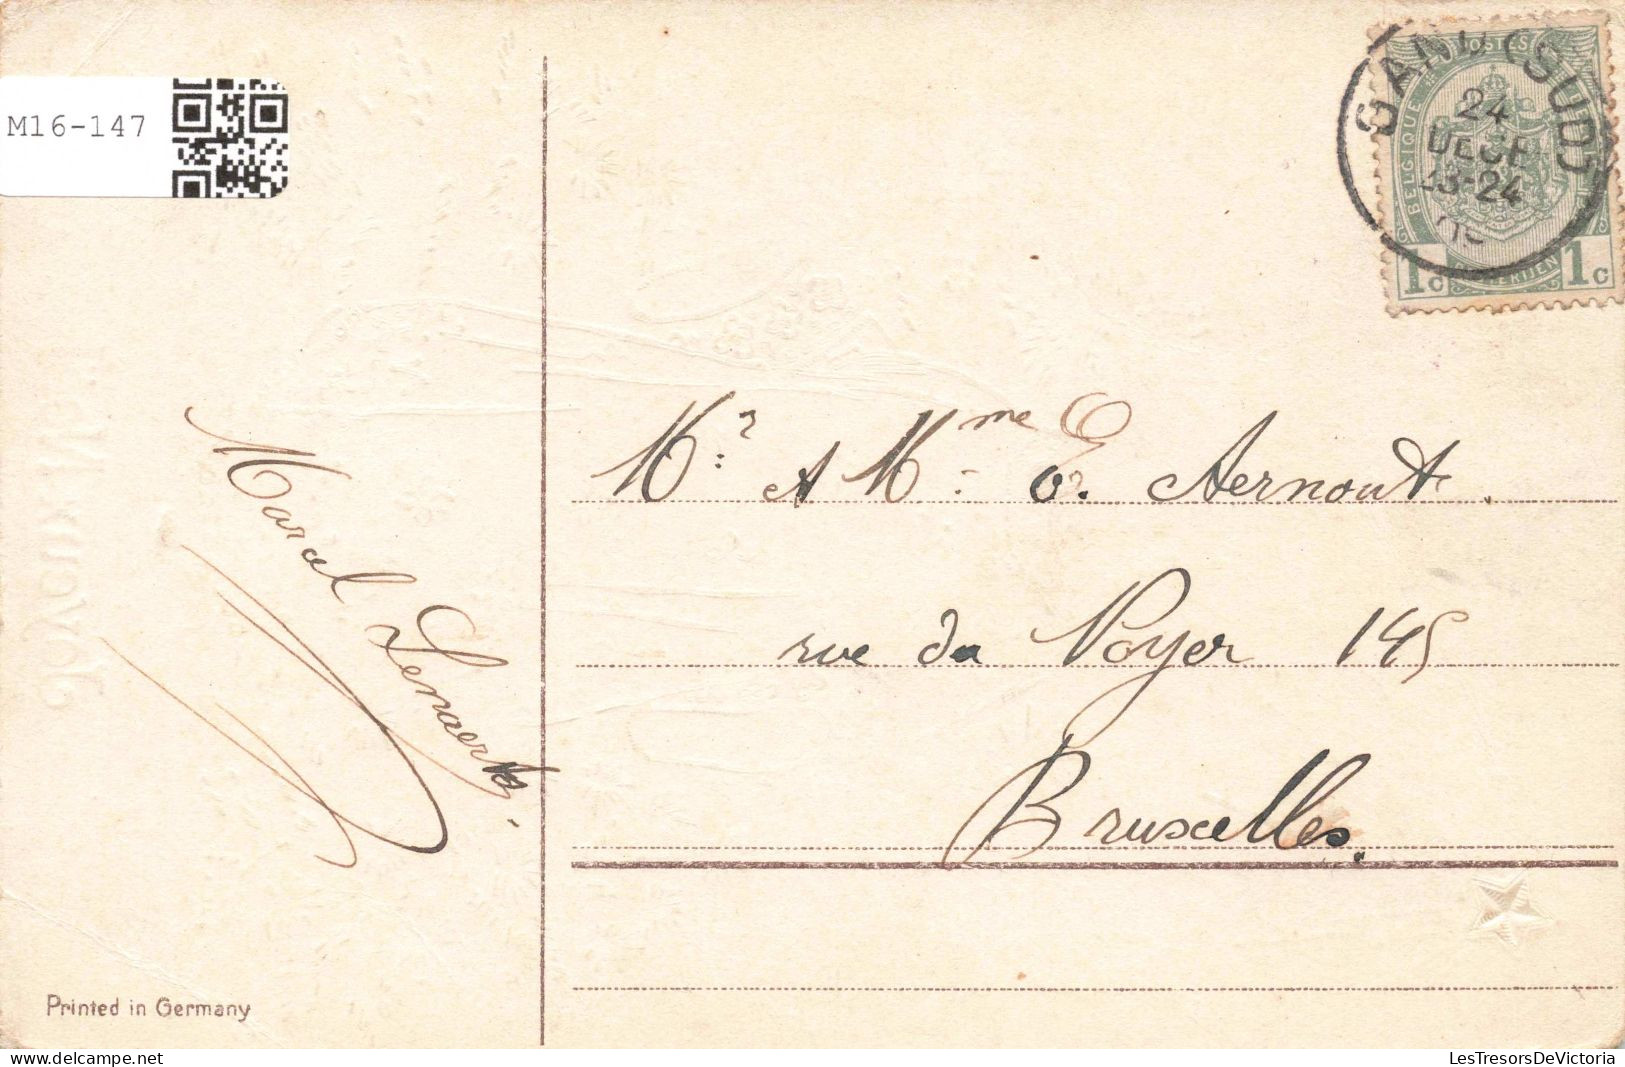 M16-147
GAND (SUD)
24
DECE
23-24
POSTES
BELGIQUE
1c 1c
Mr. & Mme. E. Aernout.
rue du Noyer 145
Bruxelles.
Marcel Lenaerts.
Joyeux
Printed in Germany
LesTresorsDeVictoria